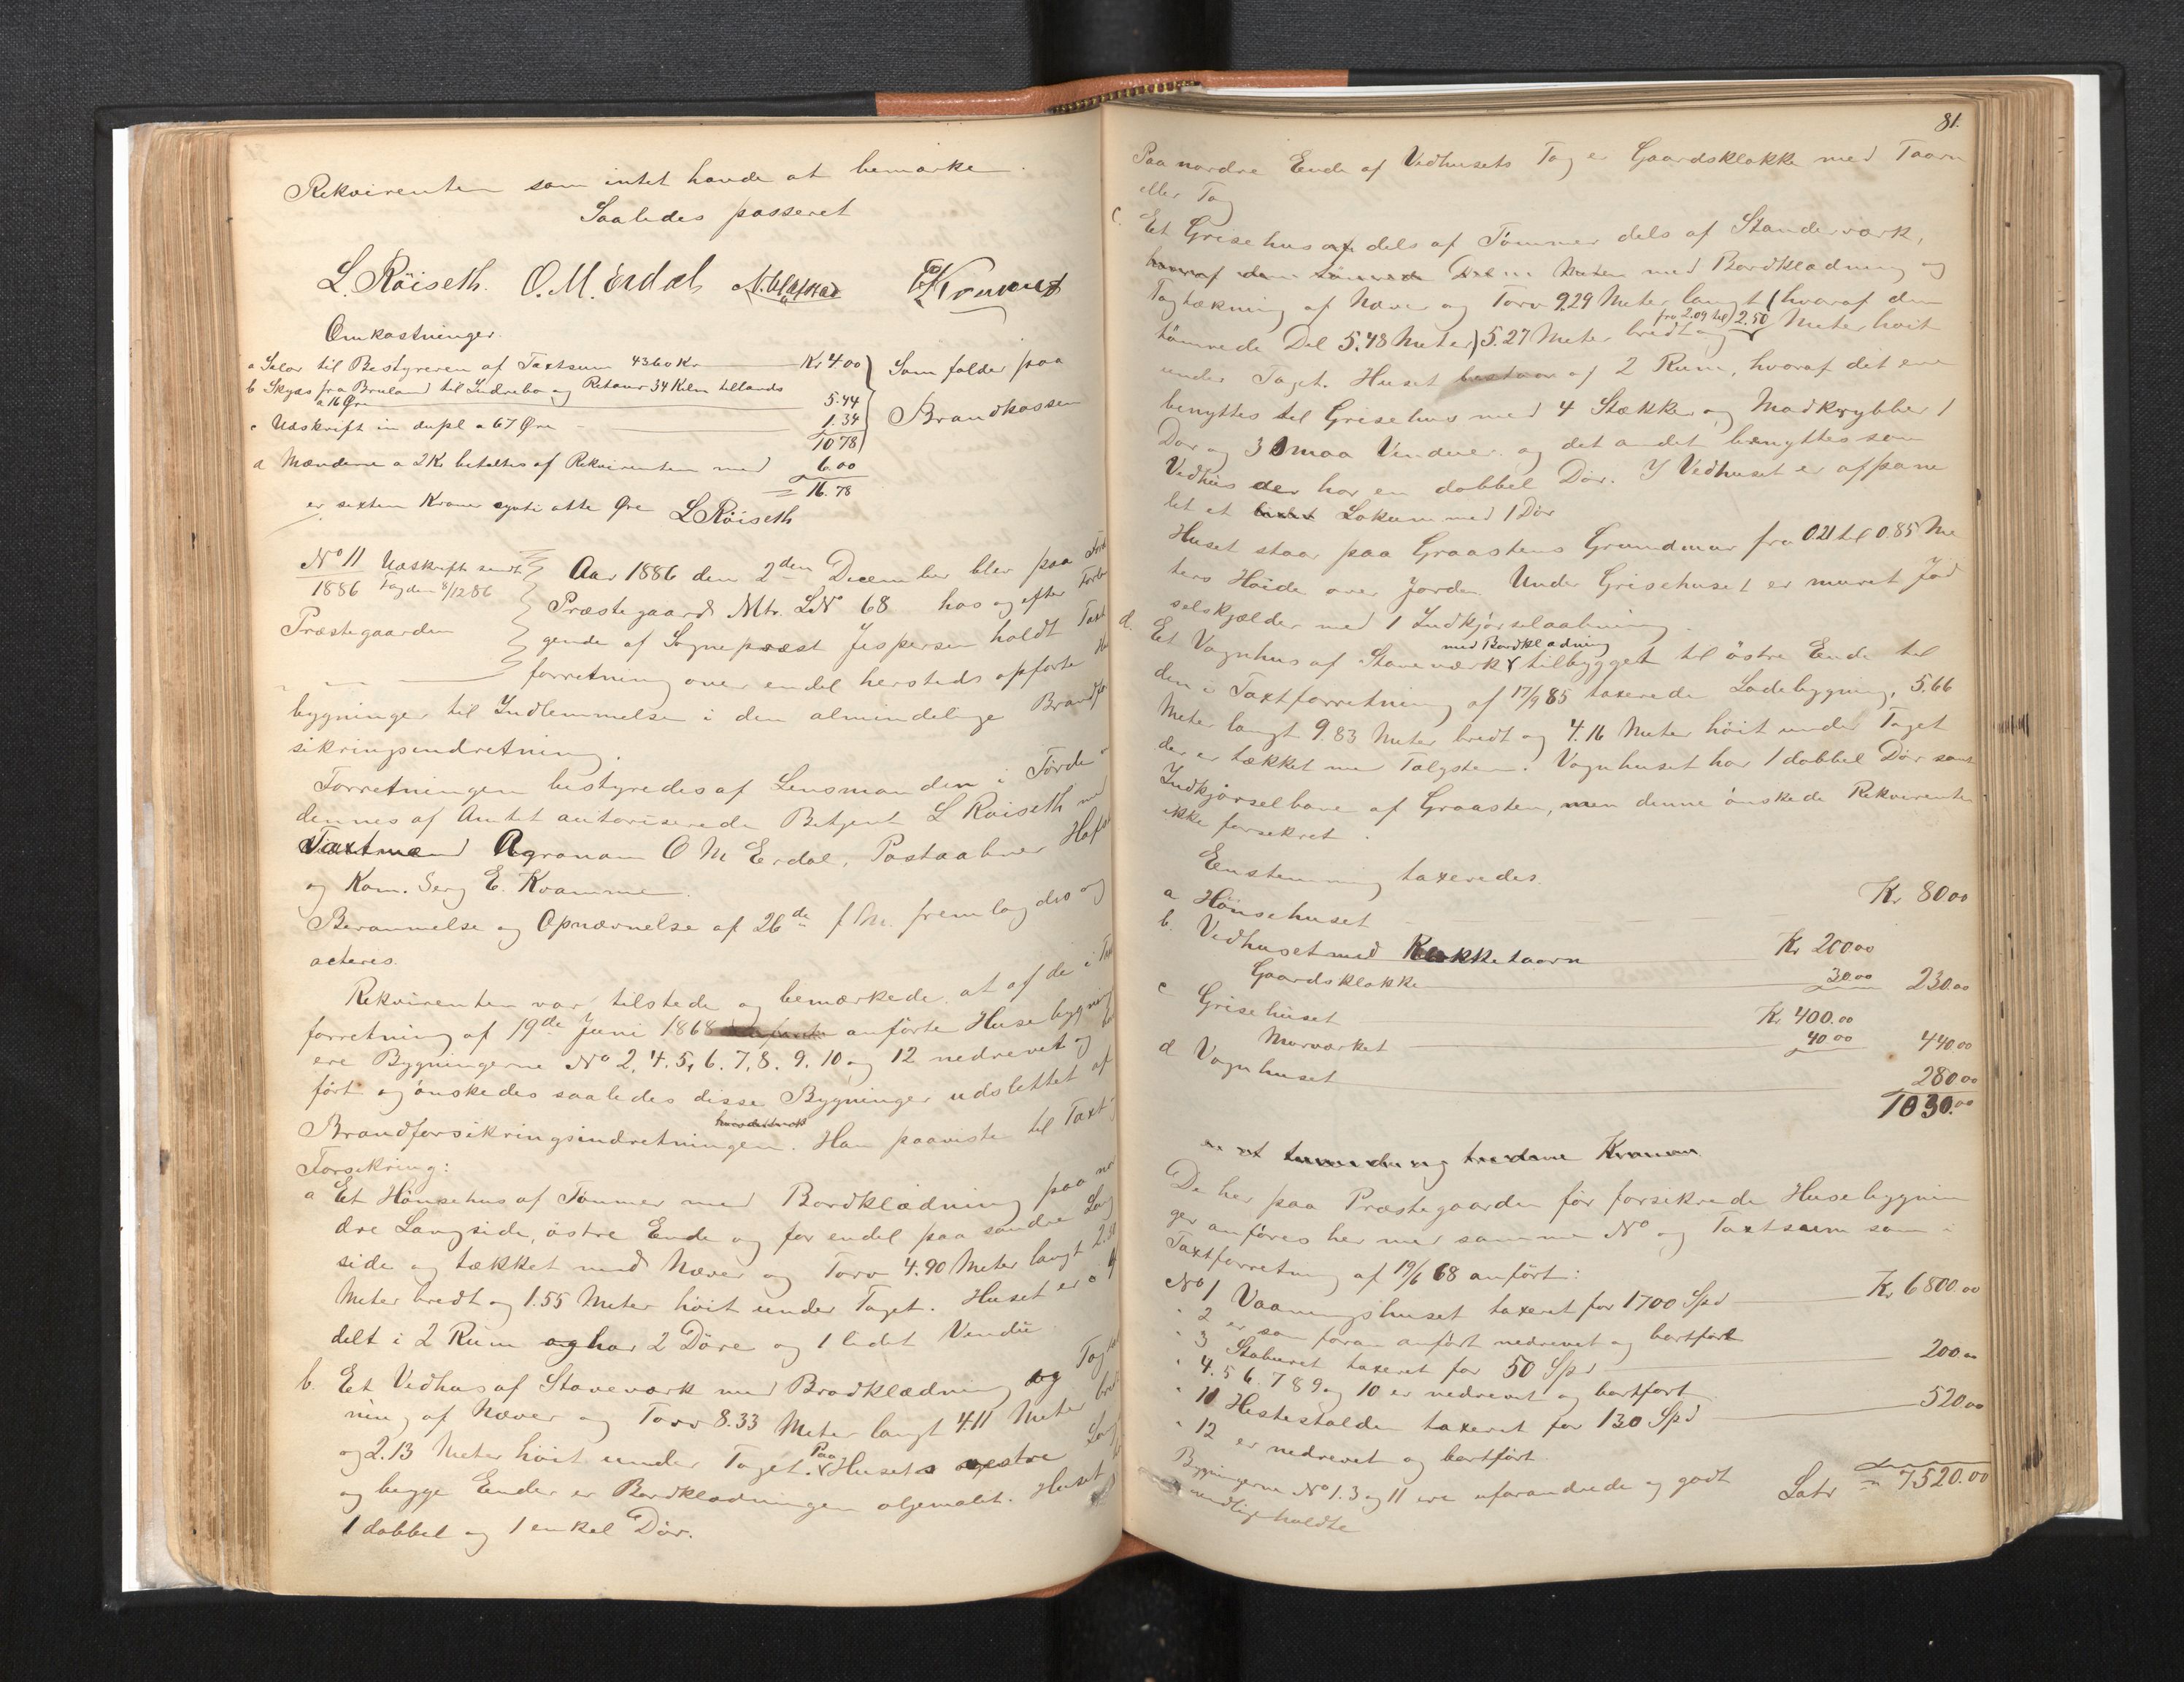 Rekvirenten som intet havde at bemærke.
Saaledes passeret
L. Röiseth. O. M. Erdal
Omkostninger.
a Salar til Bestyreren af Taxtsum 4360 Kr — Kr 4.00
b Skyds fra Bruland til Indrebo og Retour 34 Klm tillands
a 16 Øre — 5.44
c Udskrift in dupl a 67 Øre — 1.34
10.78
Som falder paa
Brandkassen
d Mændene a 2 Kr betaltes af Rekvirenten med 6.00
= 16.78
er sexten Kroner sytti otte Øre L Röiseth
No 11 Udskrift sendt
1886 Fogden 8/12 86
Præstegaarden
Aar 1886 den 2den December blev paa Förde
Præstegaard Mtr. LNo 68 hos og efter Forlan
gende af Sognepræst Jespersen holdt Taxt
forretning over endel hersteds opförte Hus
bygninger til Indlemmelse i den almindelige Brandfor
sikringsindretning.
Forretningen bestyredes af Lensmanden i Förde
dennes af Amtet autoriserede Betjent L Röiseth med
Taxtmænd Agronom O M Erdal, Postaabner
og Kom. Serg E. Kvamme.
Berammelse og Opnævnelse af 26de f. M. fremlagdes og
acteres.
Rekvirenten var tilstede og bemærkede, at af de i Taxt
forretning af 19de Juni 1868 anförte Husebygninger
ere Bygningerne No 2, 4. 5, 6. 7, 8. 9. 10 og 12 nedrevet og bort
fört og önskedes saaledes disse Bygninger udslettet af
Brandforsikringsindretningen. Han paaviste til Taxt og
Forsikring:
a Et Hönsehus af Tömmer med Bordklædning paa nor
dre Langside, östre Ende og for endel paa söndre Lang
side og tækket med Næver og Torv 4.90 Meter langt
Meter bredt og 1.55 Meter höit under Taget. Huset er
delt i 2 Rum og har 2 Döre og 1 lidet Vendu
b. Et Vedhus af Stavværk med Bordklædning og Tagtæk
ning af Næver og Torv 8.33 Meter langt 4.11 Meter bredt
og 2.13 Meter höit under Taget. Paa Husets vestre Lang
og begge Ender er Bordklædningen oljemalet. Huset har
1 dobbel og 1 enkel Dör.
81.
Paa nordre Ende af Vedhusets Tag er Gaardsklokke med Taarn
eller Tag
c. Et Grisehus dels af Tömmer dels af Standerværk,
med Bordklædning og
Tagtækning af Næver og Torv 9.29 Meter langt (hvoraf den
tömrede Del 5.48 Meter) 5.27 Meter bredt og fra 2.09 til 2.50 Meter höit
under Taget. Huset bestaar af 2 Rum, hvoraf det ene
benyttes til Grisehus med 4 Stækker og Madkrybber 1
Dör og 3 smaa Vinduer og det andet benyttes som
Vedhus der har en dobbel Dör. I Vedhuset er afpane
let et Lokum med 1 Dör
Huset staar paa Graastens Grundmur fra 0.21 til 0.85 Me
ters Höide over Jorden. Under Grisehuset er muret Jöd
selskjælder med 1 Indkjörselaabning.
d. Et Vognhus af Stavværk med Bordklædning tilbygget til östre Ende til
den i Taxtforretning af 17/9 85 taxerede Ladebygning, 5.66
Meter langt 9.83 Meter bredt og 4.16 Meter höit under Taget
der er tækket med Talgsten. Vognhuset har 1 dobbel Dör samt
Indkjörselbane af Graasten, men denne önskede Rekvirenten
ikke forsekret.
Eenstemmig taxeredes.
a Hönsehuset — Kr 80.00
b. Vedhuset med Klokketaarn — Kr 200.00
Gaardsklokke — 30.00 230.00
c Grisehuset Kr 400.00
Murværket — 40.00 440.00
d Vognhuset — 280.00
1030.00
er et tusinde og tredive Kroner
De her paa Præstegaarden för forsikrede Husebygnin
ger anföres her med samme No og Taxtsum som i
Taxtforretning af 19/6 68 anfört:
No 1 Vaaningshuset taxeret for 1700 Spd — Kr 6800.00
" 2 er som foran anfört nedrevet og bortfört
" 3 Staburet taxeret for 50 Spd — 200.00
" 4. 5 6. 7 8 9 og 10 er nedrevet og bortfört
" 11 Hestestalden taxeret for 130 Spd — 520.00
" 12 er nedrevet og bortfört
Bygningerne No 1. 3 og 11 ere uforandrede og godt
vedligeholdte
Latr = 7520.00